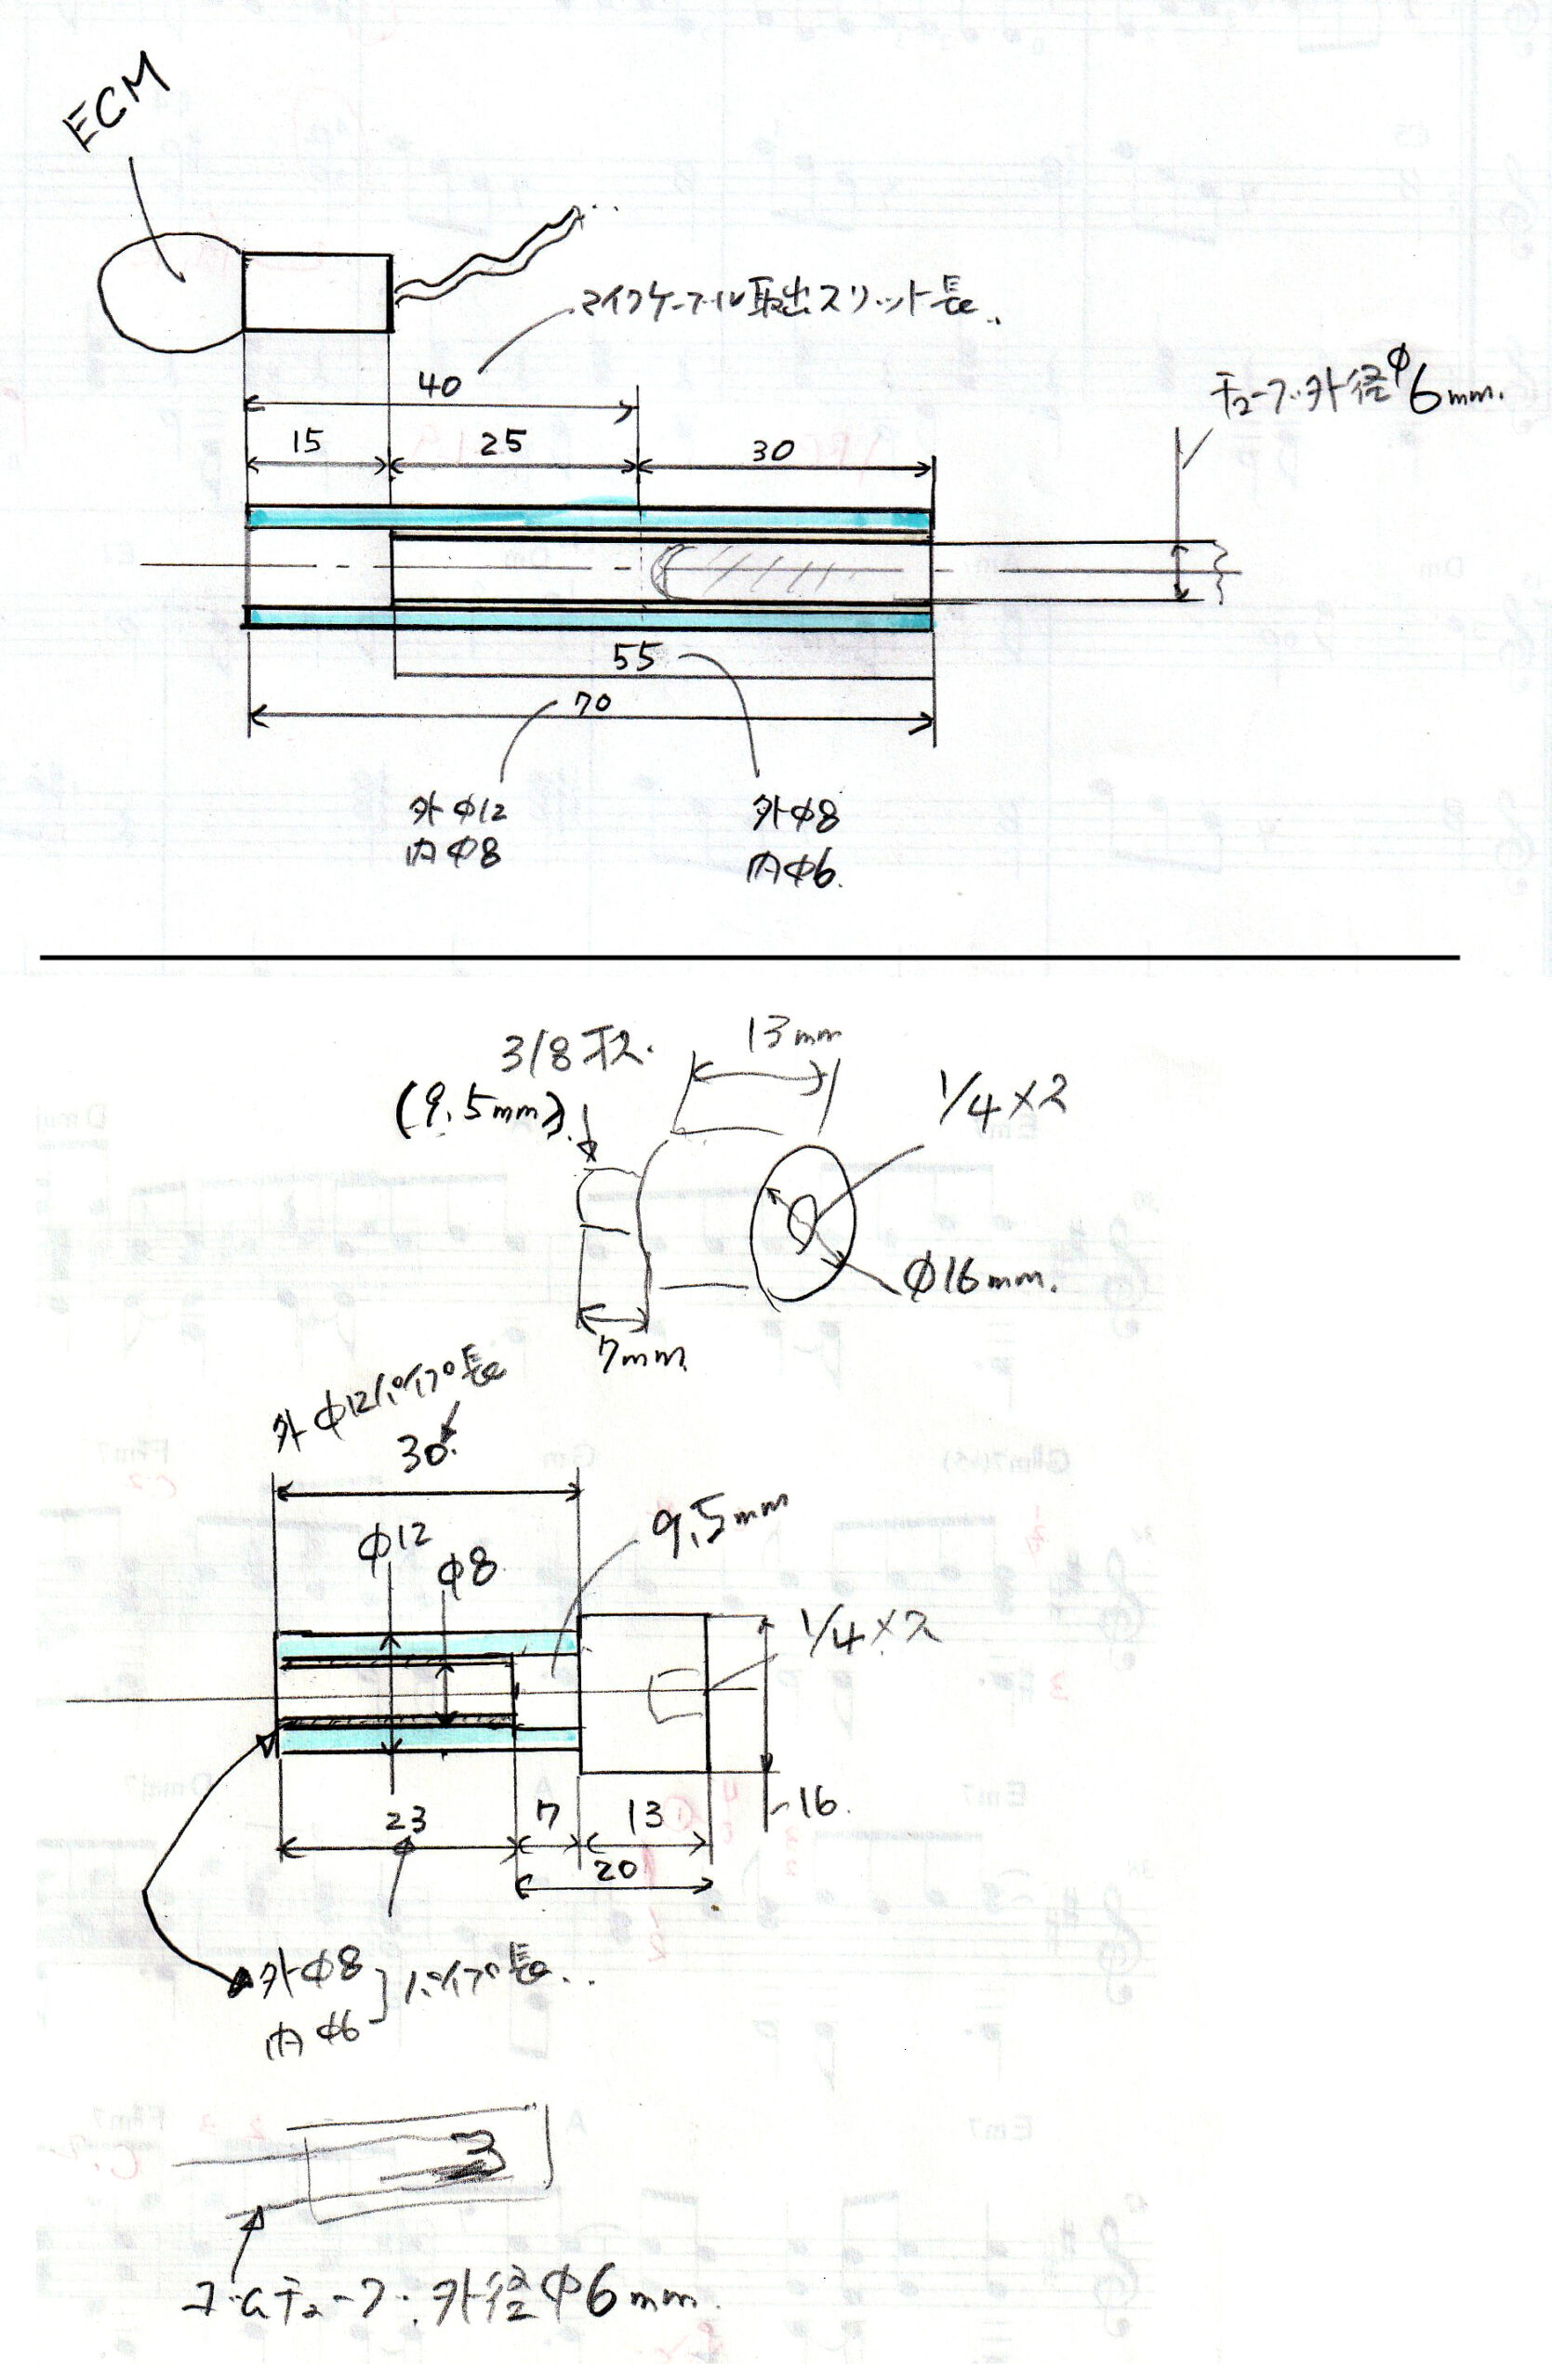 ECM
マイクケーブル取出スリット長
40
15
25
30
チューブ外径φ6mm.
55
70
外φ12
内φ8
外φ8
内φ6.
3/8オス
(9.5mm)
13mm
1/4×2
φ16mm.
7mm
外φ12パイプ長
30
φ12
φ8
9.5mm
1/4×2
23
7
13
16
20
外φ8
内φ6
パイプ長
ゴムチューブ外径φ6mm.